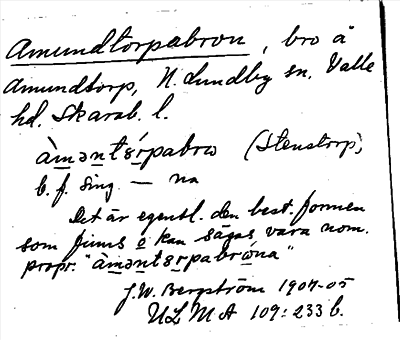 Amundtorpabron, bro å
Amundtorp, N. Lundby sn, Valle
hd. Skarab. l.
àmən̲ts̲r̲pabrω (Stenstorp),
b. f. sing. — na
Det är egentl. den best. formen
som finns o kan sägas vara nom.
propr. "àmənts̲r̲pabrωna"
J.W. Bergström 1904-05
ULMA 109:233 b.